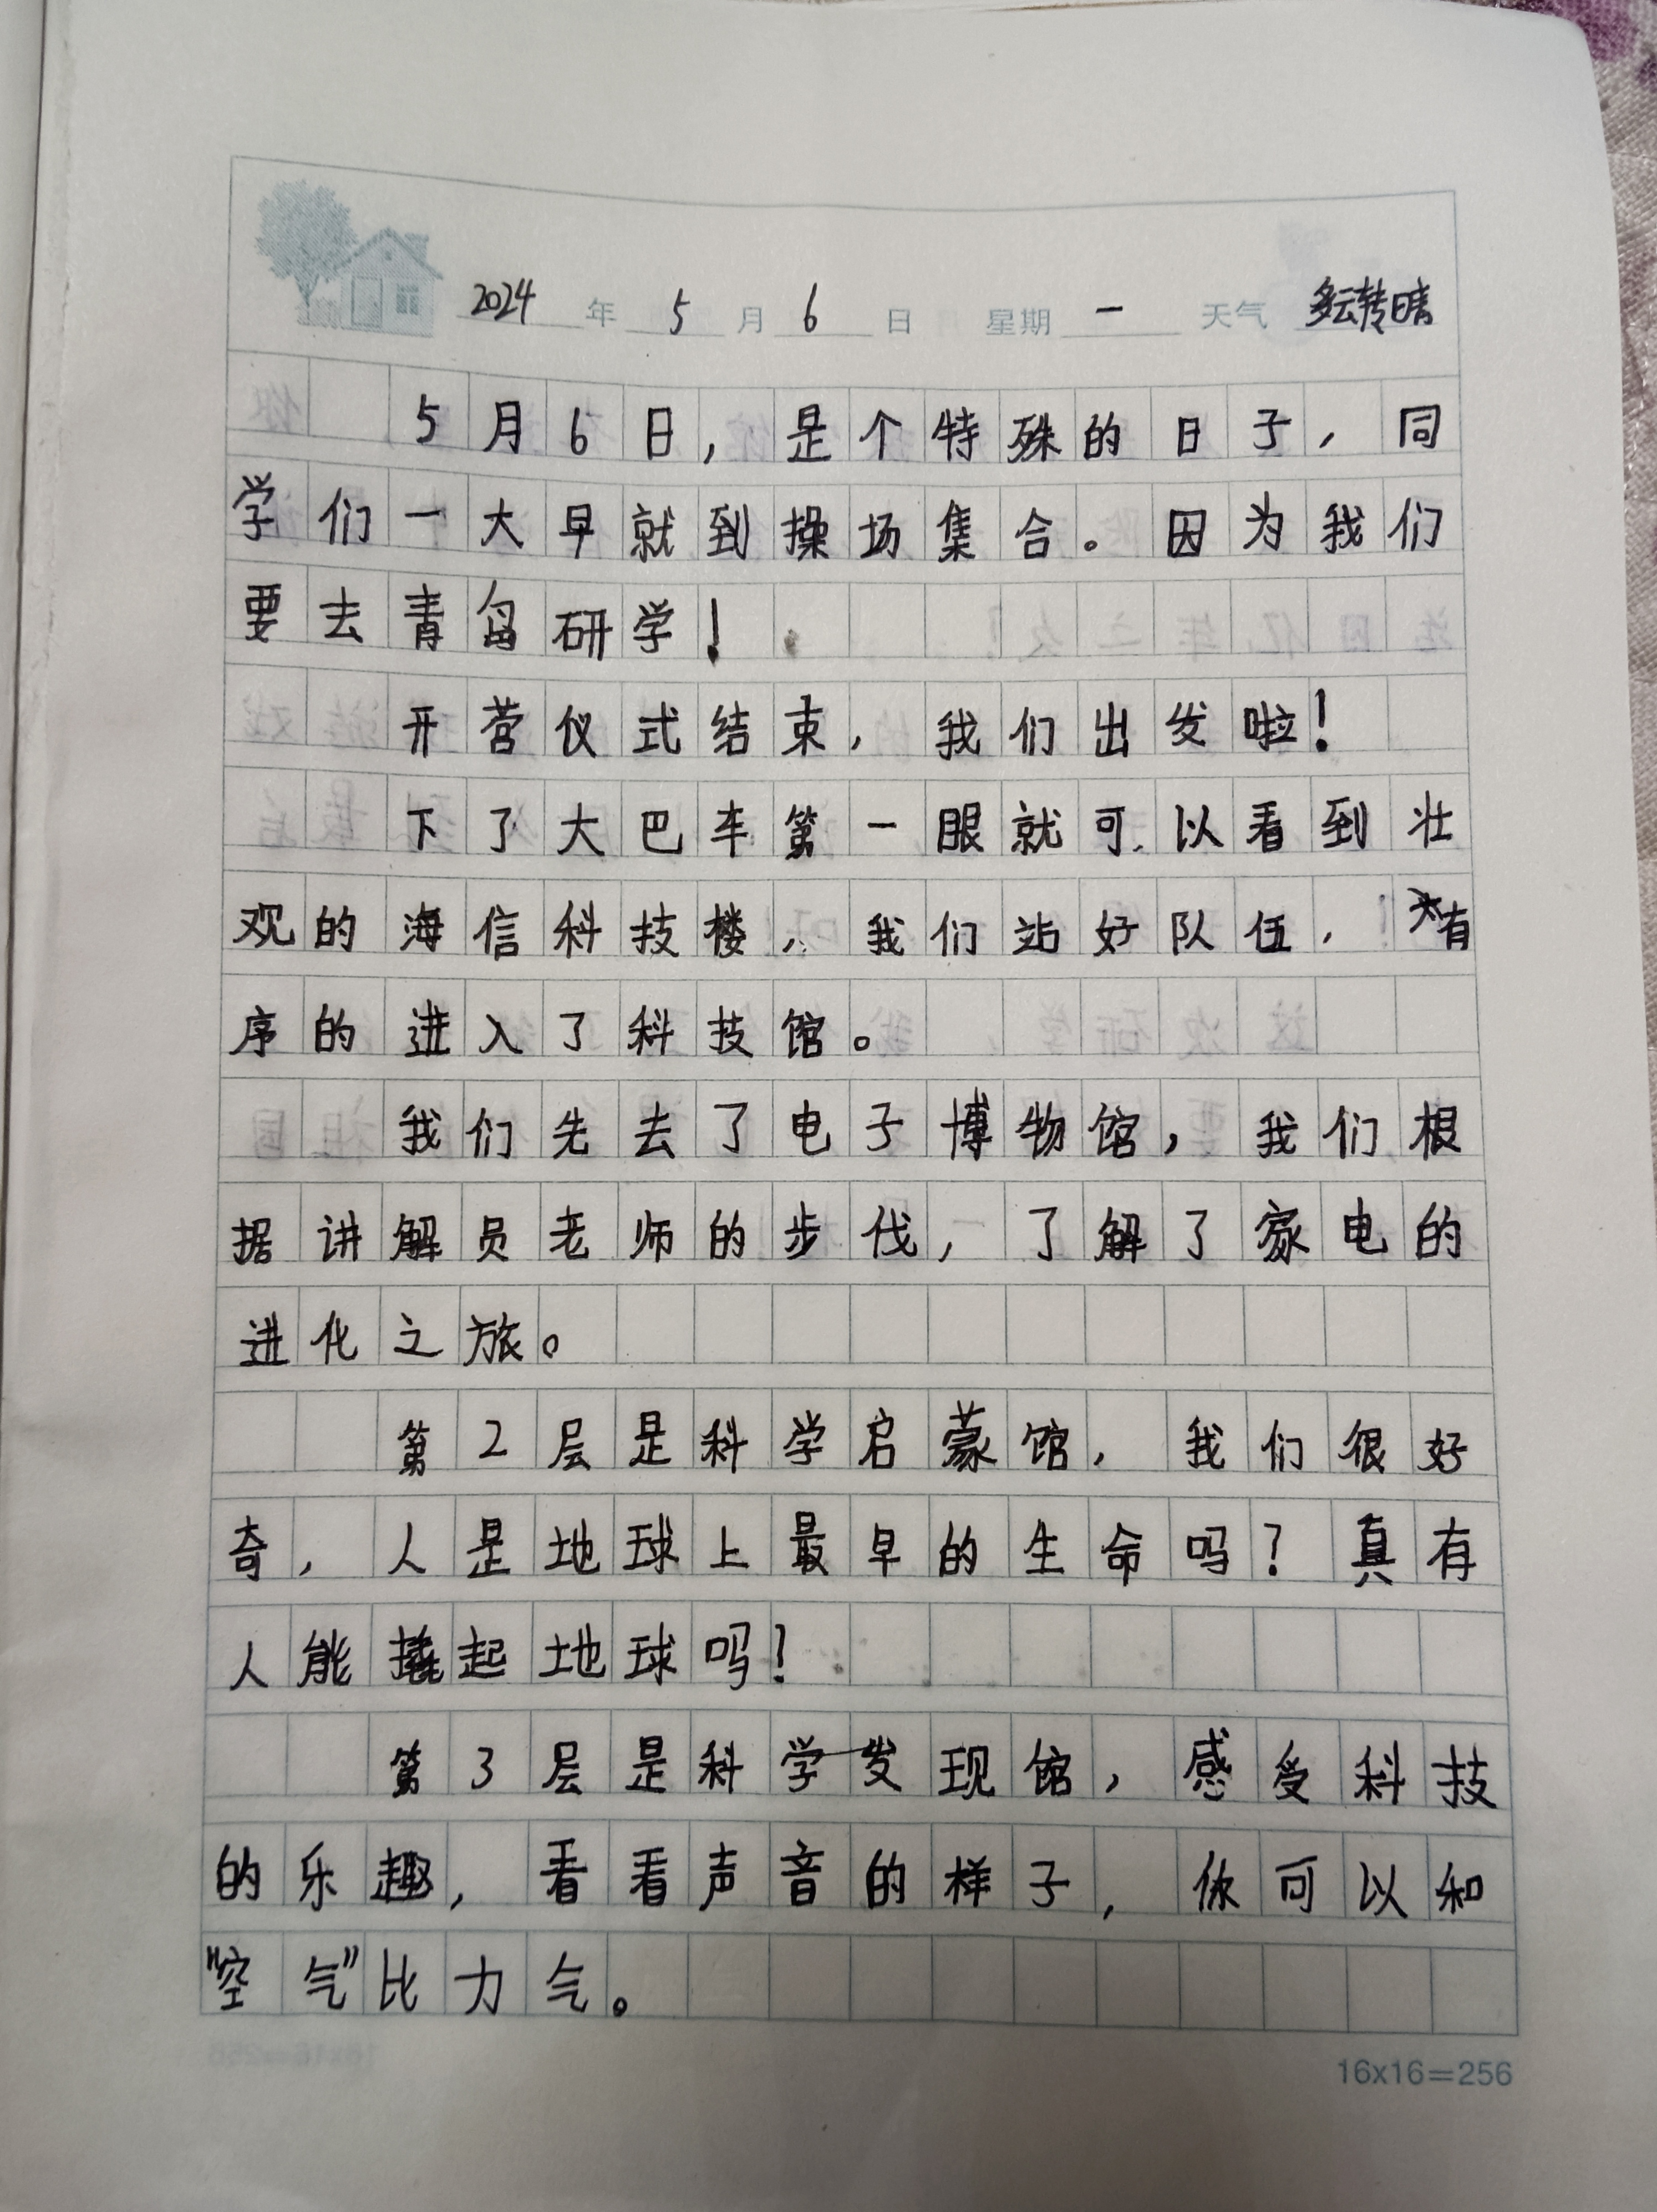 2024年5月6日 星期一 天气 多云转晴
5月6日，是个特殊的日子，同
学们一大早就到操场集合。因为我们
要去青岛研学！
开营仪式结束，我们出发啦！
下了大巴车第一眼就可以看到壮
观的海信科技楼，我们站好队伍，有
序的进入了科技馆。
我们先去了电子博物馆，我们根
据讲解员老师的步伐，了解了家电的
进化之旅。
第2层是科学启蒙馆，我们很好
奇，人是地球上最早的生命吗？真有
人能撬起地球吗？
第3层是科学发现馆，感受科技
的乐趣，看看声音的样子，你可以和
“空气”比力气。
16x16=256